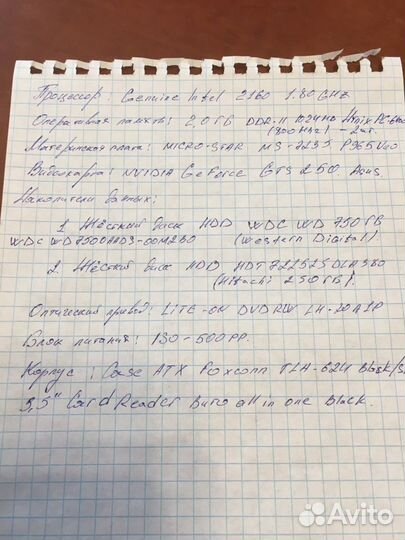 Процессор: Genuine Intel 2160 1.80 GHz
Оперативная память: 2,0 ГБ DDR-II 1024МБ Hynix PC-6400
(800MHz) - 2шт.
Материнская плата: MICRO-STAR MS-7235 P965 Neo
Видеокарта: NVIDIA GeForce GTS 250. Asus.
Накопители данных:
1. Жёсткий диск HDD WDC WD 750 ГБ
WDC WD7500AADS-00M2B0 (Western Digital)
2. Жёсткий диск HDD HDT722525DLA380
(Hitachi 250 ГБ).
Оптический привод: LITE-ON DVDRW LH-20A1P
Блок питания: ISO-500PP.
Корпус: Case ATX Foxconn TLA-624 Black/S
3,5" Card Reader Buro all in one Black.
Avito